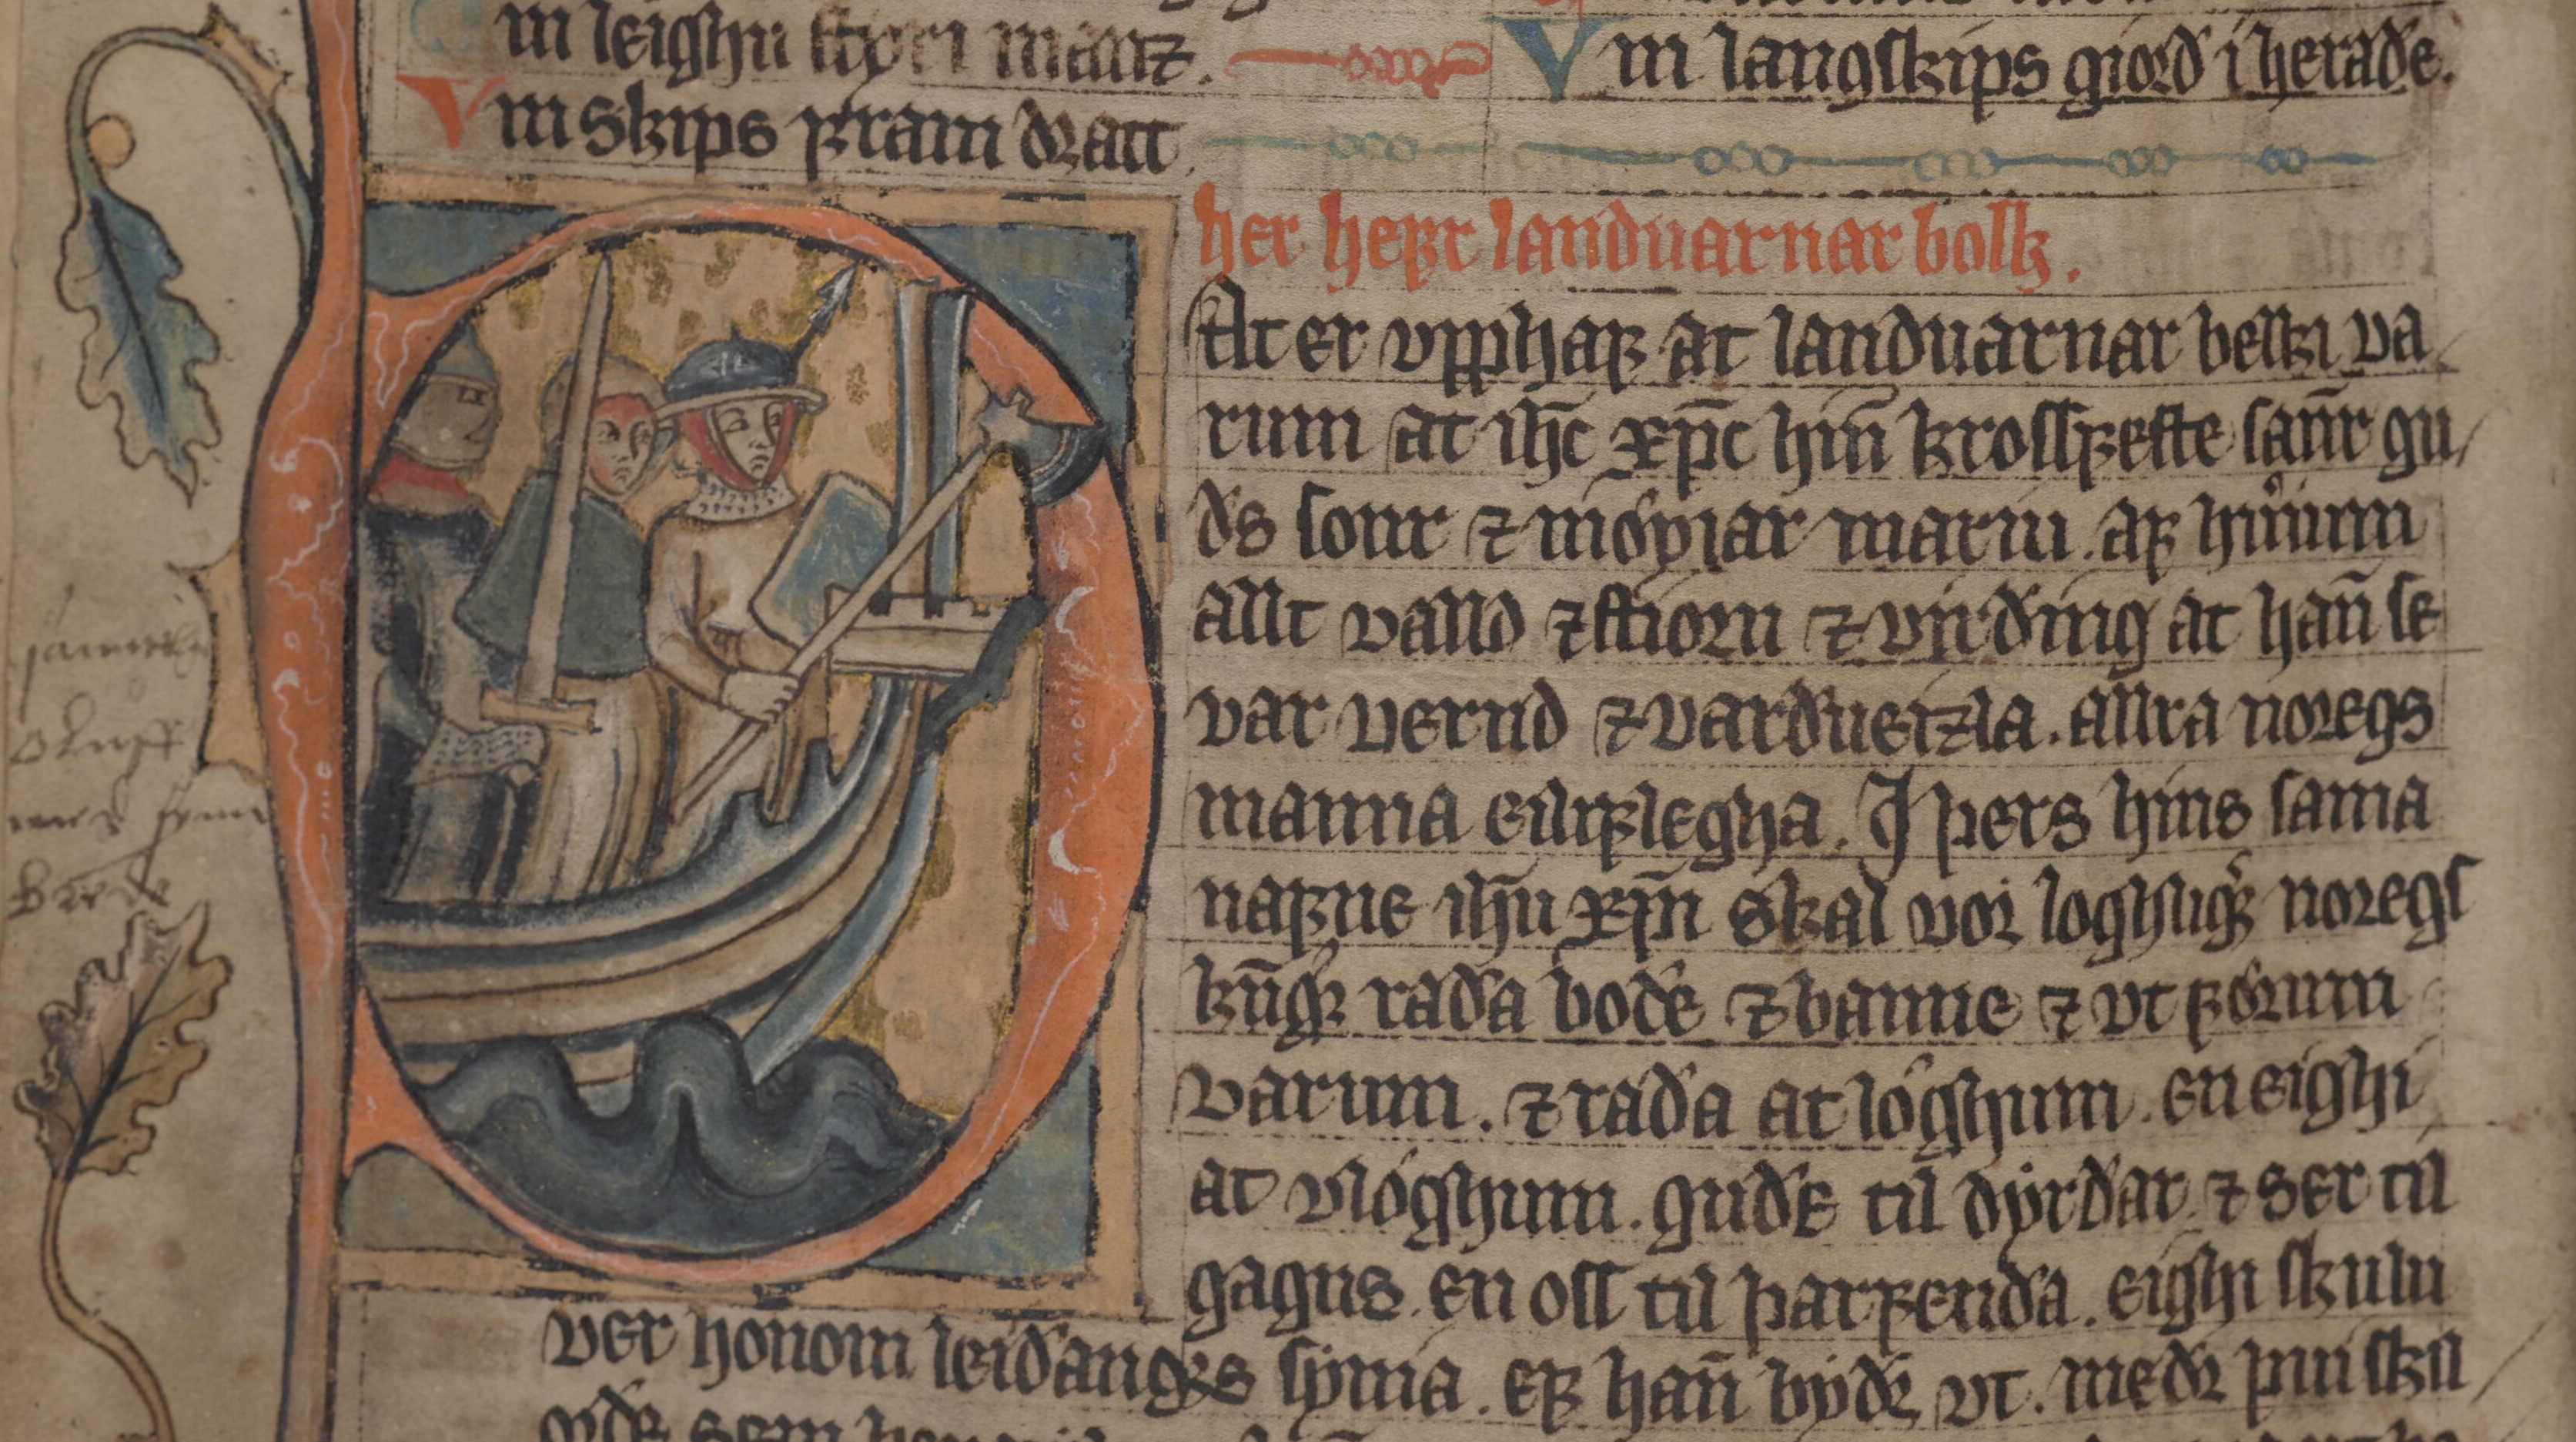 Um leighu styri manz.
Um skips fram drátt
Um langskips giord i herade.
her hefr landuarnar bolk.
At er upphaf at landuarnar belki va
rum at ihc xpc hin krossfeste sanr gu
ds sonr ⁊ móyiar mariu. af huerium
allt valld ⁊ stiorn ⁊ virding at han se
var vernd ⁊ varðueizla. allra noregs
manna eiliflegha. J þers hins sama
nafne ihu xpi skal vor loghligr noregs
kungr rada bode ⁊ banne ⁊ ut fórum
varum. ⁊ rada at lóghum. en eighi
at vlóghum. gude til dyrdar ⁊ ser til
gagns. en oss til þarfenda. eighi skulu
ver honom leiðangrs synia. ef han bydr ut. medr þui sku